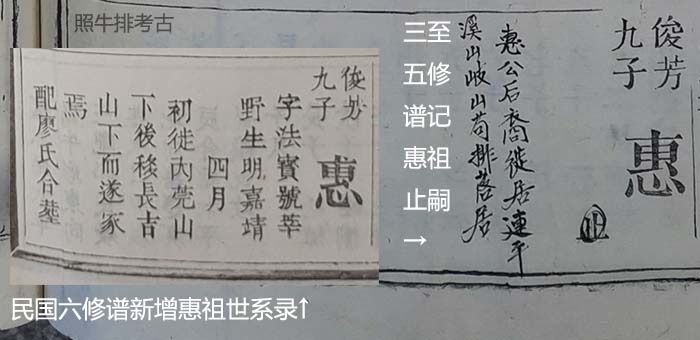 照牛排考古
俊芳
九子
惠
字法賓號莘
野生明嘉靖
四月
初徙內莞山
下後移長吉
山下而遂冢
焉
配廖氏合葬
民国六修谱新增惠祖世系录↑
三至
五修
谱记
惠祖
止嗣
→
俊芳
九子
惠
止
惠公后裔徙居連平
溪山岐山苟排落居